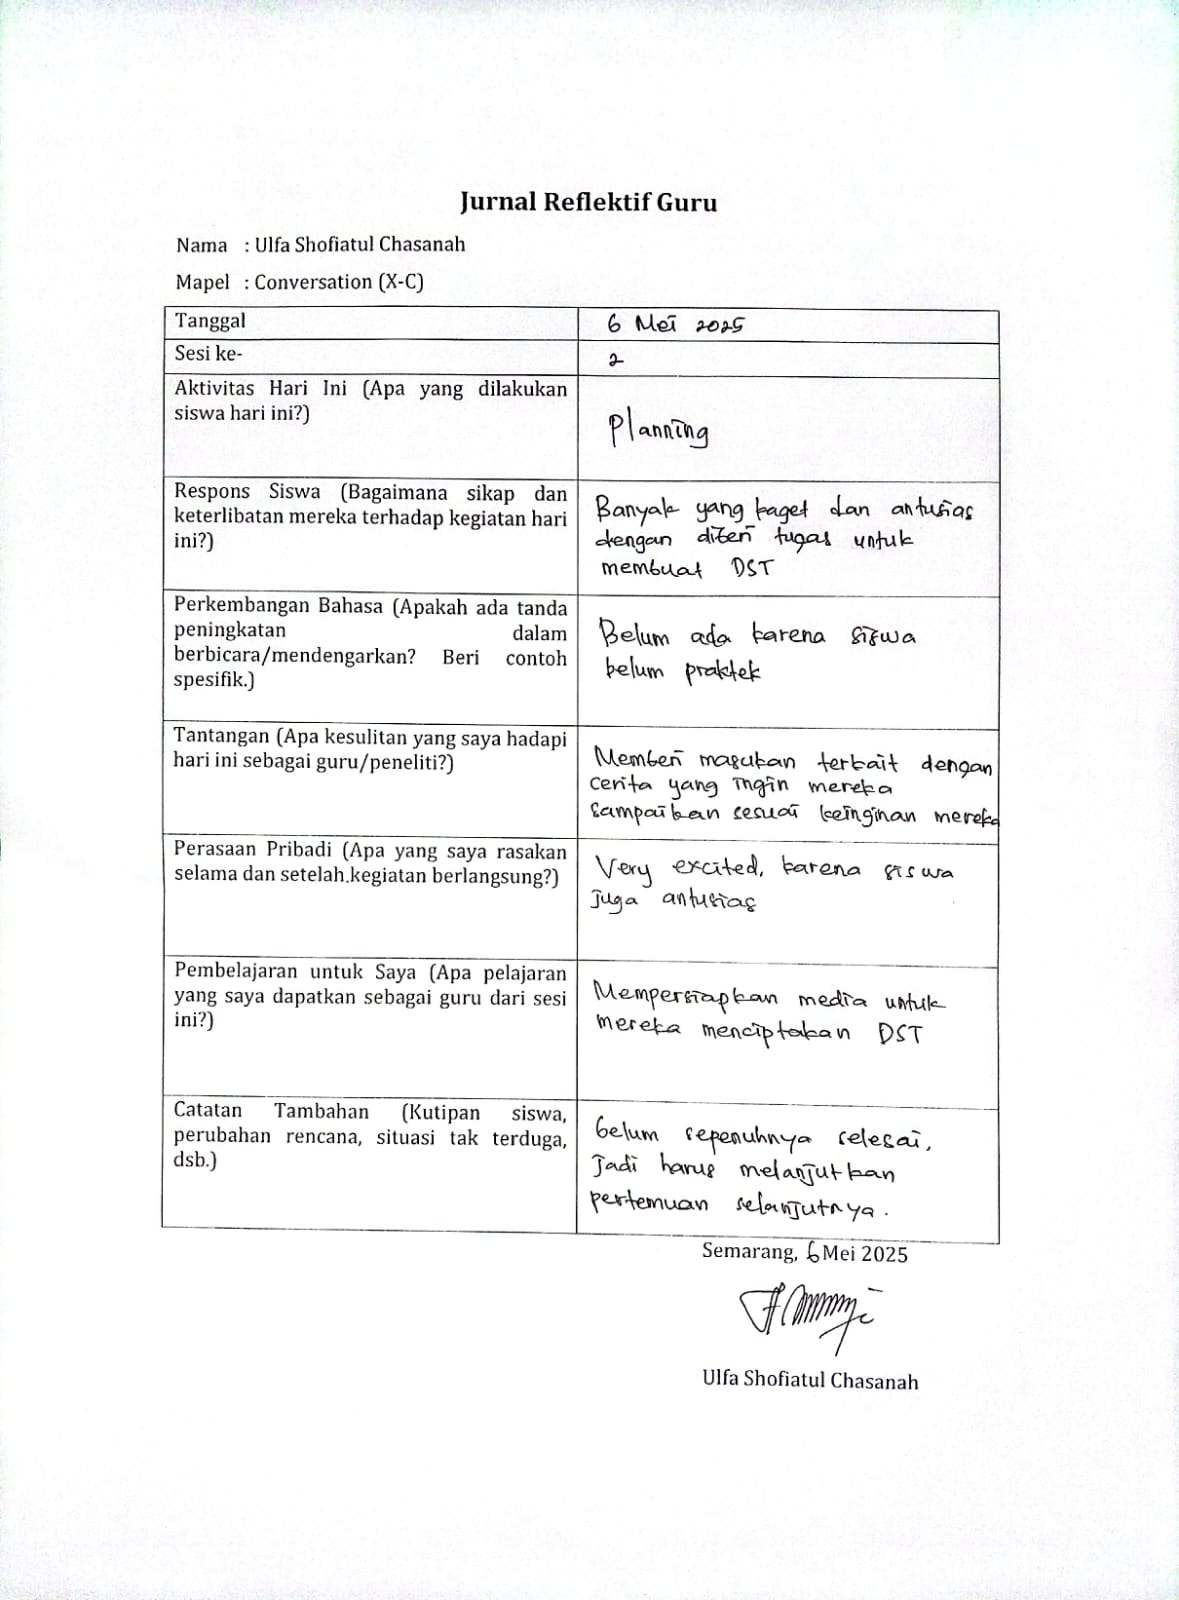 Jurnal Reflektif Guru
Nama : Ulfa Shofiatul Chasanah
Mapel : Conversation (X-C)
Tanggal
6 Mei 2025
Sesi ke-
2
Aktivitas Hari Ini (Apa yang dilakukan
siswa hari ini?)
Planning
Respons Siswa (Bagaimana sikap dan
keterlibatan mereka terhadap kegiatan hari
ini?)
Banyak yang kaget dan antusias
dengan diberi tugas untuk
membuat DST
Perkembangan Bahasa (Apakah ada tanda
peningkatan dalam
berbicara/mendengarkan? Beri contoh
spesifik.)
Belum ada karena siswa
belum praktek
Tantangan (Apa kesulitan yang saya hadapi
hari ini sebagai guru/peneliti?)
Memberi masukan terkait dengan
cerita yang ingin mereka
sampaikan sesuai keinginan mereka
Perasaan Pribadi (Apa yang saya rasakan
selama dan setelah kegiatan berlangsung?)
Very excited, karena siswa
juga antusias
Pembelajaran untuk Saya (Apa pelajaran
yang saya dapatkan sebagai guru dari sesi
ini?)
Mempersiapkan media untuk
mereka menciptakan DST
Catatan Tambahan (Kutipan siswa,
perubahan rencana, situasi tak terduga,
dsb.)
belum sepenuhnya selesai,
jadi harus melanjutkan
pertemuan selanjutnya.
Semarang, 6 Mei 2025
Ulfa Shofiatul Chasanah